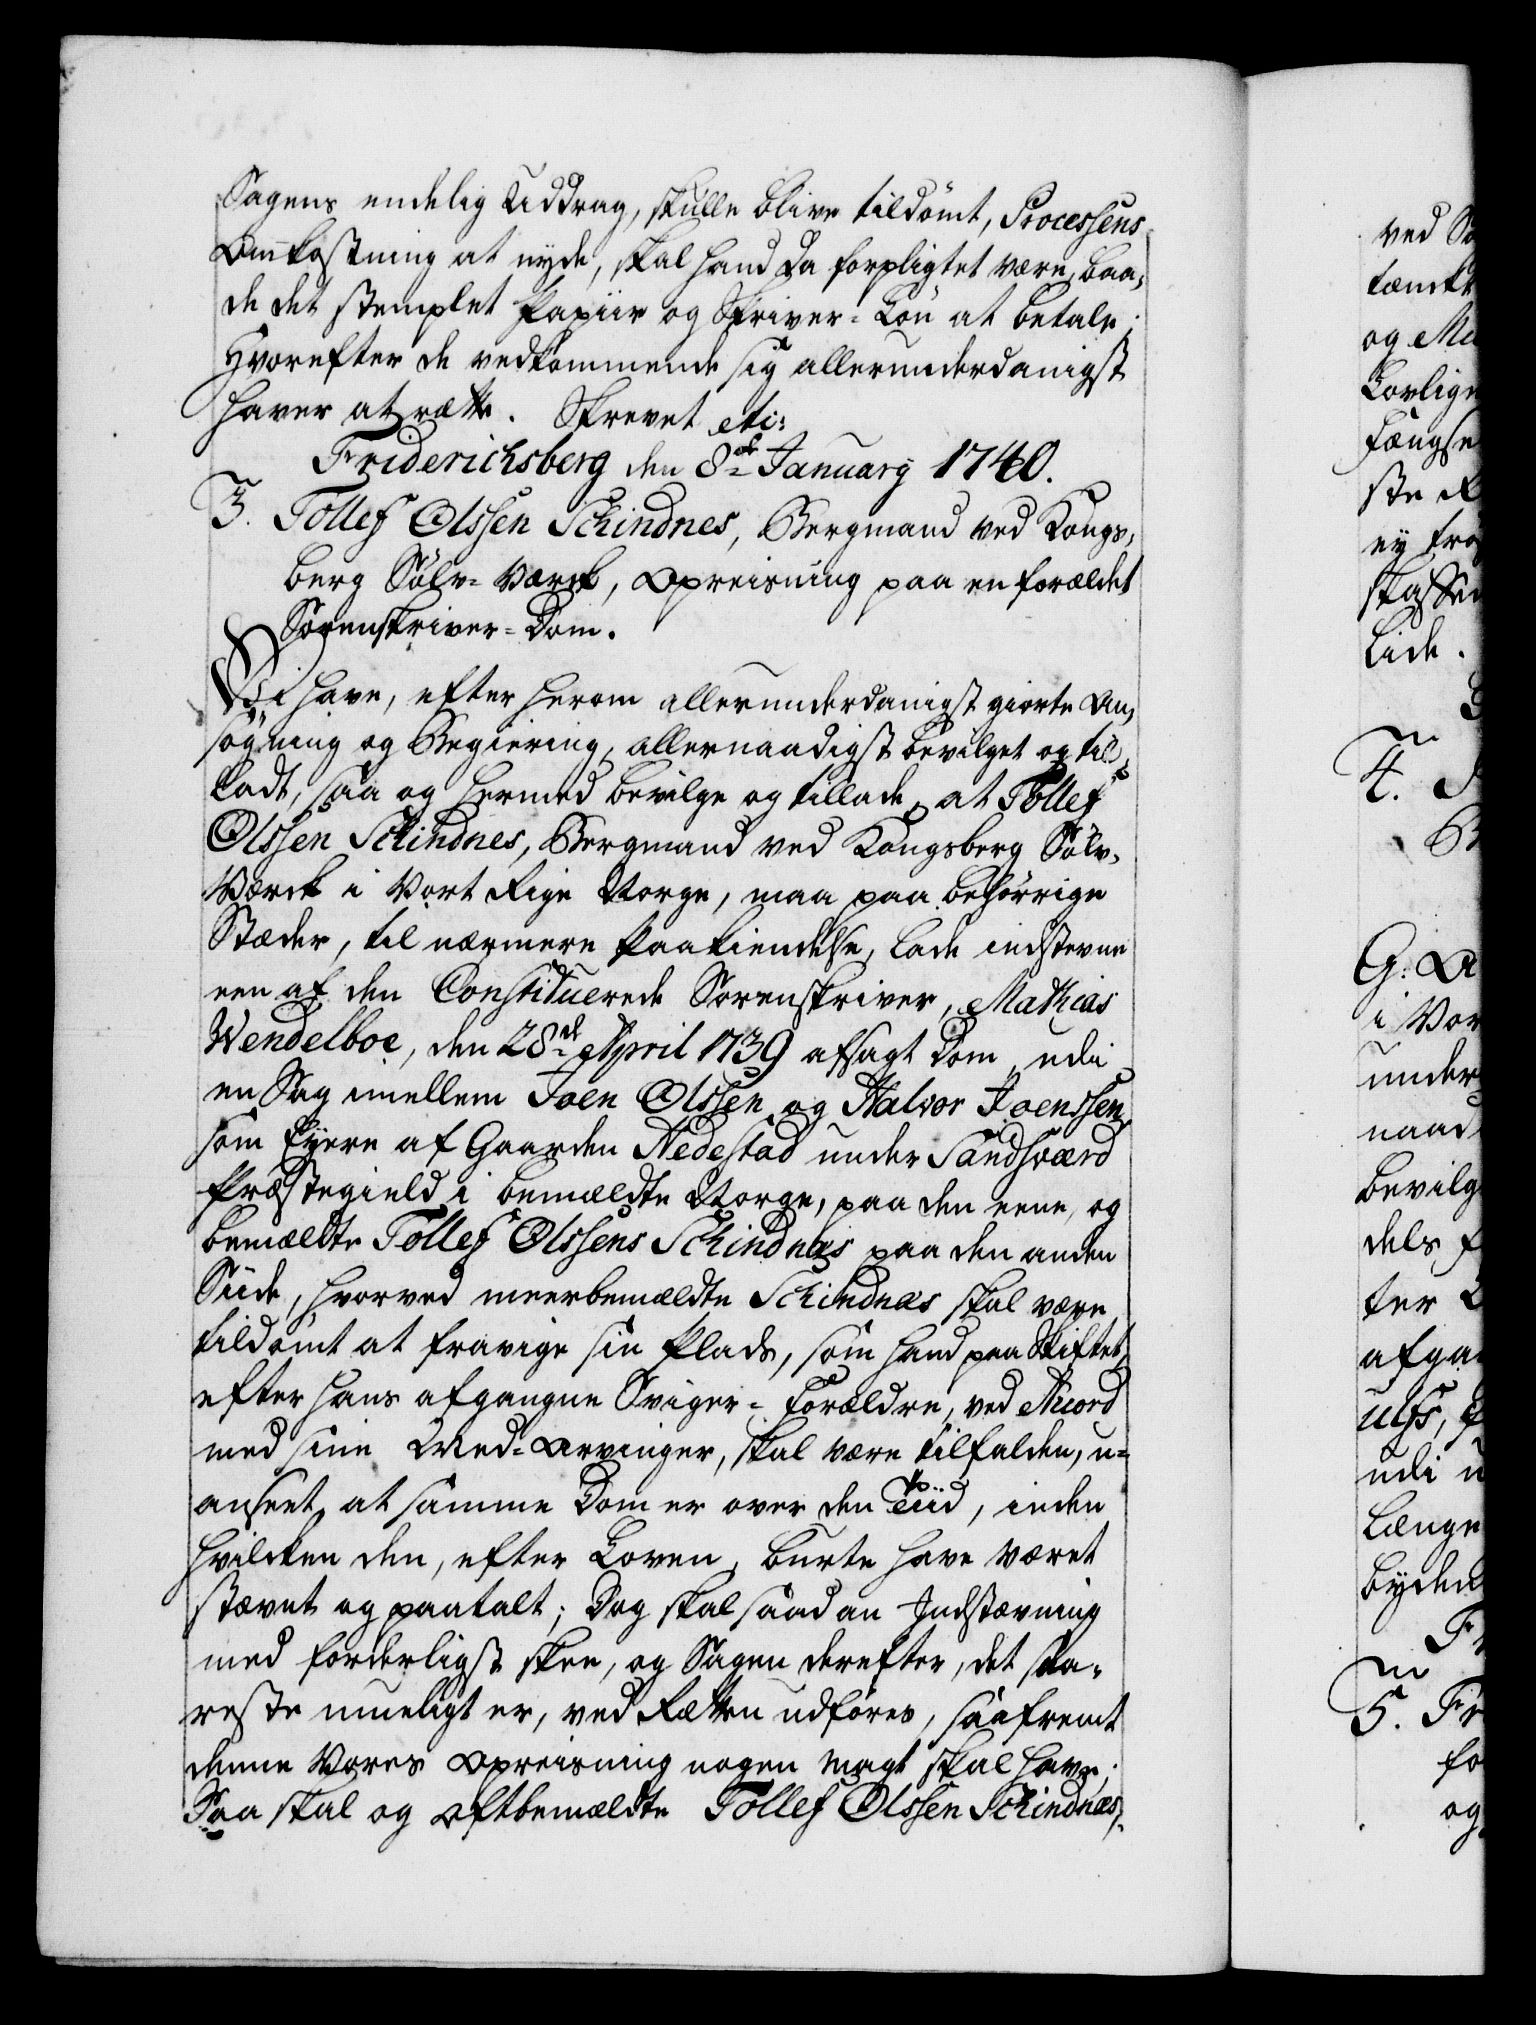 Sagens endelig Uddrag, skulle blive tildömt, Processens
Omkostning at nyde, skal hand da forpligtet være, baa,
de det stemplet Papiir og Skriver-Lön at betale.
Hvorefter de vedkommende sig allerunderdanigst
haver at rætte. Skrevet etc:
Friderichsberg den 8de January 1740.
3. Tollef Olssen Schindnes, Bergmand ved Kongs,
berg Sölv-Værck, Opreisning paa en forældet
Sorenskriver-Dom.
Vi have, efter herom allerunderdanigst giorte An,
sögning og Begiering, allernaadigst bevilget og til,
ladt, saa og hermed bevilge og tillade, at Tollef
Olssen Schindnes, Bergmand ved Kongsberg Sölv-
Værck i Vort Rige Norge, maa paa behörrige
Stæder, til nærmere Paakiendelse, lade indstevne
een af den Constituerede Sorenskriver, Mathias
Wendelboe, den 28de April 1739 afsagt Dom, udi
en Sag imellem Joen Olssen og Halvor Joenssen,
som Eyere af Gaarden Hedestad under Sandsværd
Præstegield i bemældte Norge, paa den eene, og
bemældte Tollef Olssens Schindnæs paa den anden
Siide, hvorved meerbemældte Schindnæs skal være
tildömt at fravige sin Plads, som hand paa Skiftet,
efter hans afgangne Sviger-Forældre, ved Accord
med sine Med-Arvinger, skal være tilfalden, u-
anseet, at samme Dom er over den Tiid, inden
hvilcken den, efter Loven, burte have været
stævnt og paatalt; Dog skal saadan Indstævning
med forderligst skee, og Sagen derefter, det sna-
reste mueligt er, ved Rætten udföres, saafremt
denne Vores Opreisning nogen Magt skal have;
Saa skal og oftbemældte Tollef Olssen Schindnæs,
ved
tænckt
og
Lovlige
Fængse
ste
ey
lide.
4.
G:
i Vor
under
naad
bevilg
dels
ter
afga
udi
længe
byden
5. Fr
fo
og